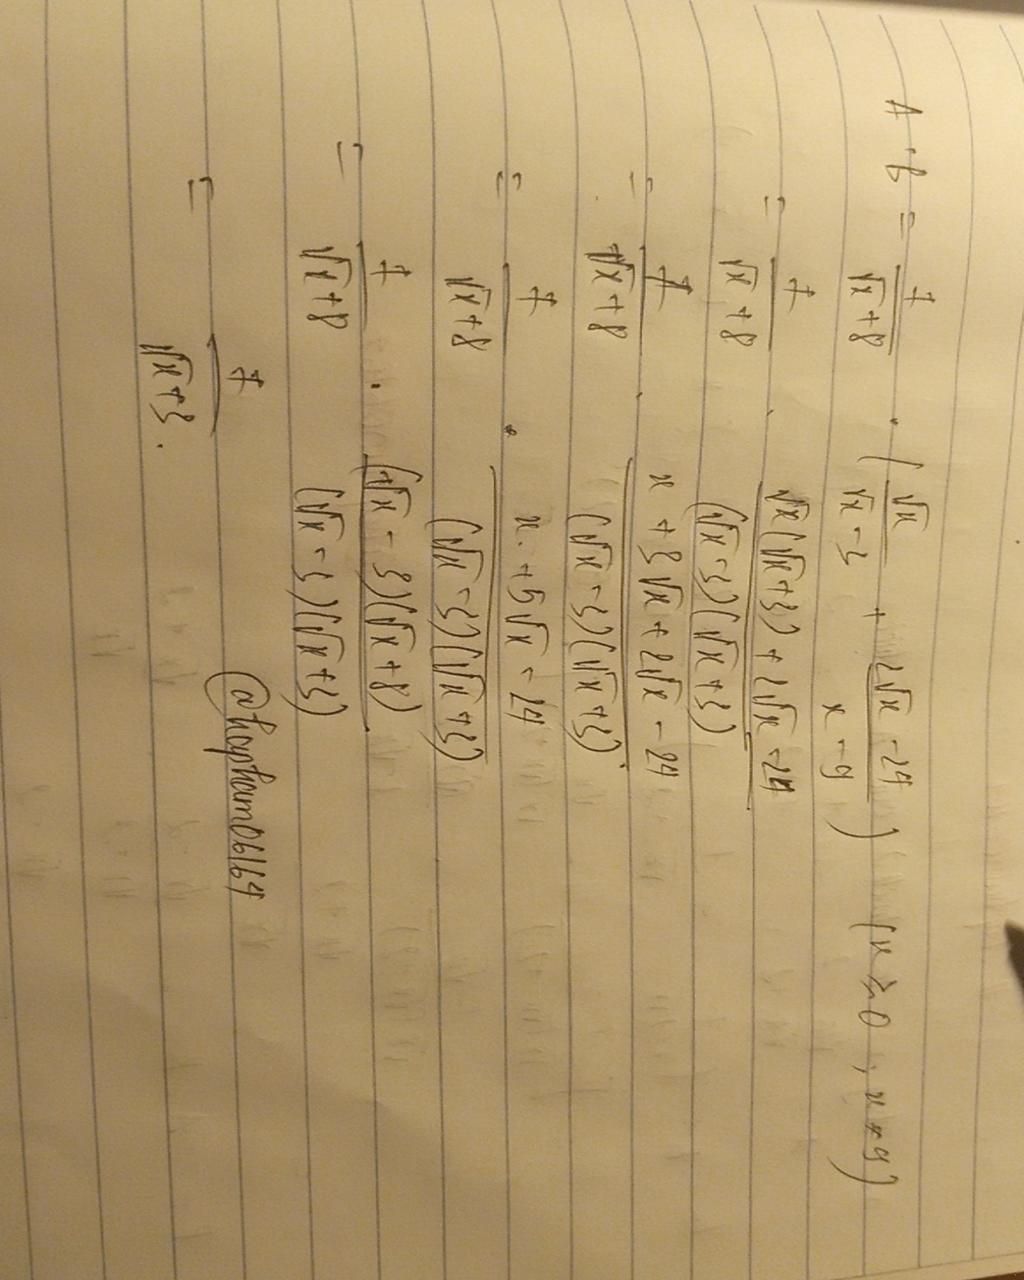 A · B = 7/(√x + 8) · (√x/(√x - 3) + (2√x - 24)/(x - 9)) (x ≥ 0 ; x ≠ 9)
= 7/(√x + 8) · (√x(√x + 3) + 2√x - 24)/((√x - 3)(√x + 3))
= 7/(√x + 8) · (x + 3√x + 2√x - 24)/((√x - 3)(√x + 3))
= 7/(√x + 8) · (x + 5√x - 24)/((√x - 3)(√x + 3))
= 7/(√x + 8) · ((√x - 3)(√x + 8))/((√x - 3)(√x + 3))
= 7/(√x + 3).
@hoapham06164